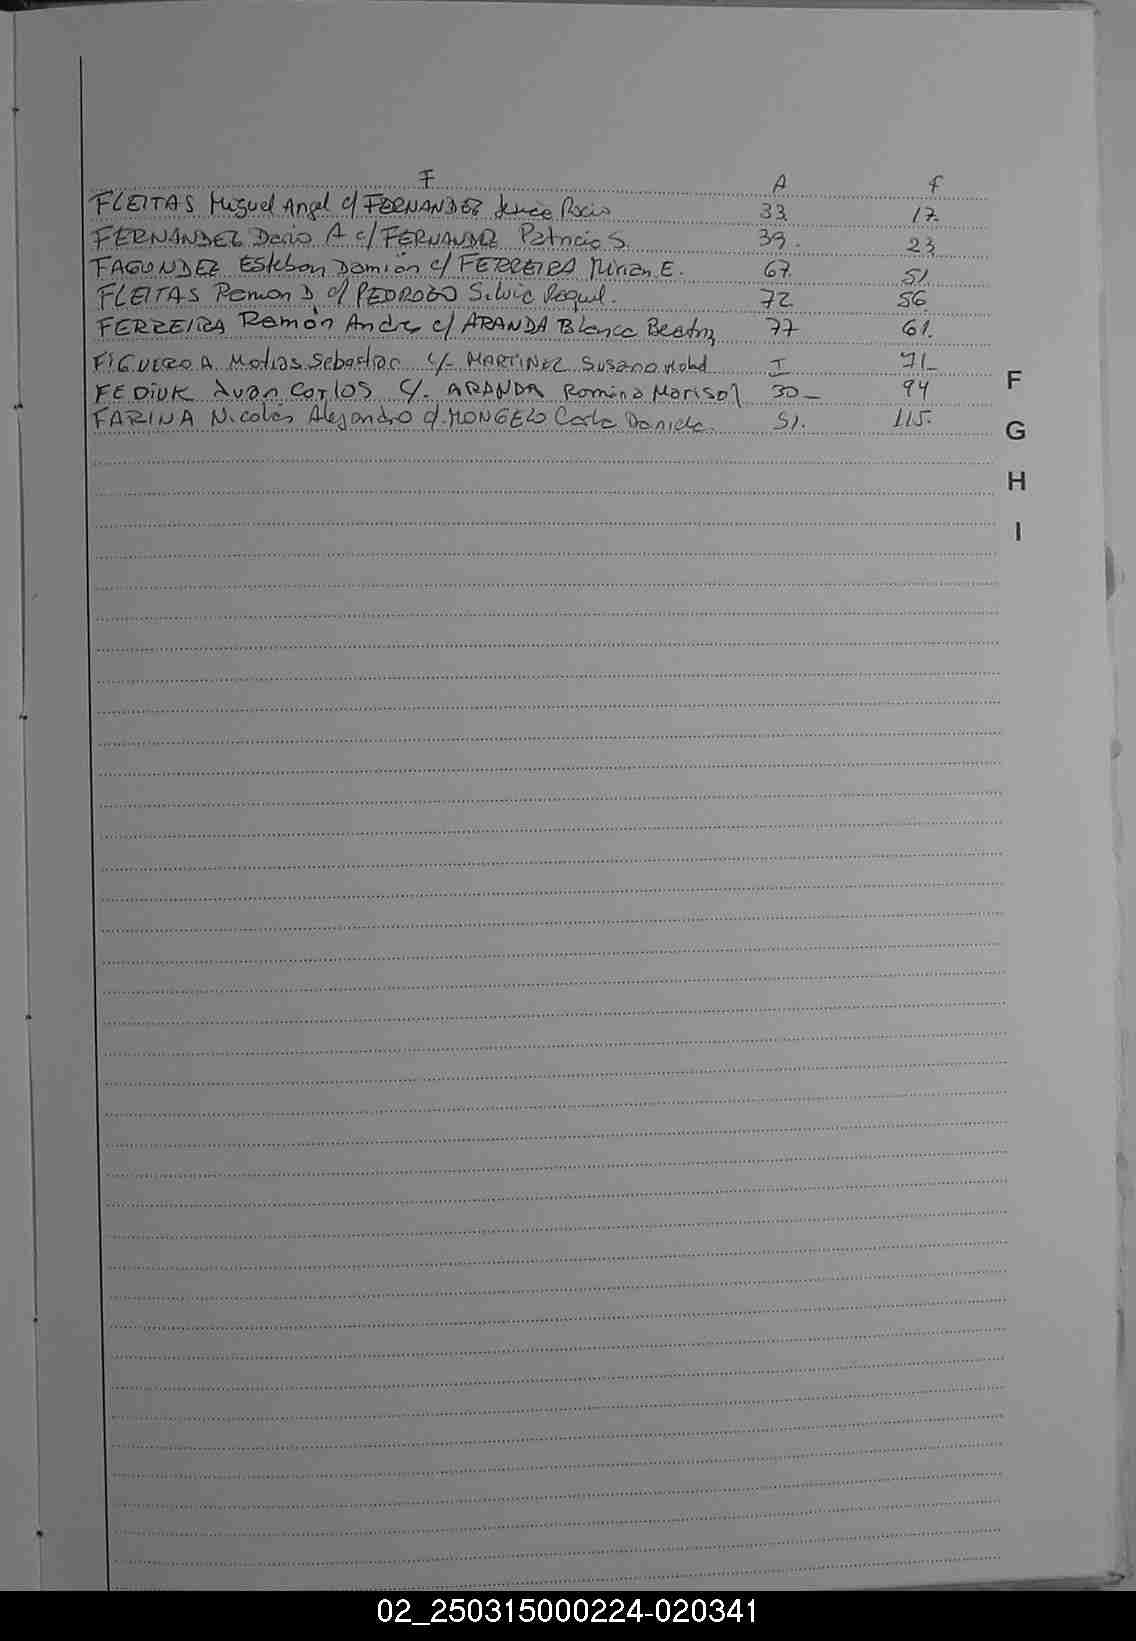 F A f
FLEITAS Miguel Angel c/ FERNANDEZ Rocio 33 17.
FERNANDEZ Dario A c/ FERNANDEZ Patricia S. 39. 23
FAGUNDEZ Esteban Damián c/ FERREIRA Mirian E. 67. 51.
FLEITAS Ramon D c/ PEDROZO Silvia Raquel. 72 56
FERREIRA Ramón Andres c/ ARANDA Blanca Beatriz 77 61.
FIGUEROA Matias Sebastian c/- MARTINEZ Susana I 71_
FEDIUK Juan Carlos c/. ARANDA Romina Marisol 30_ 94
FARINA Nicolás Alejandro c/. MONGELO Carla Daniela. 51. 115.
F
G
H
I
02_250315000224-020341